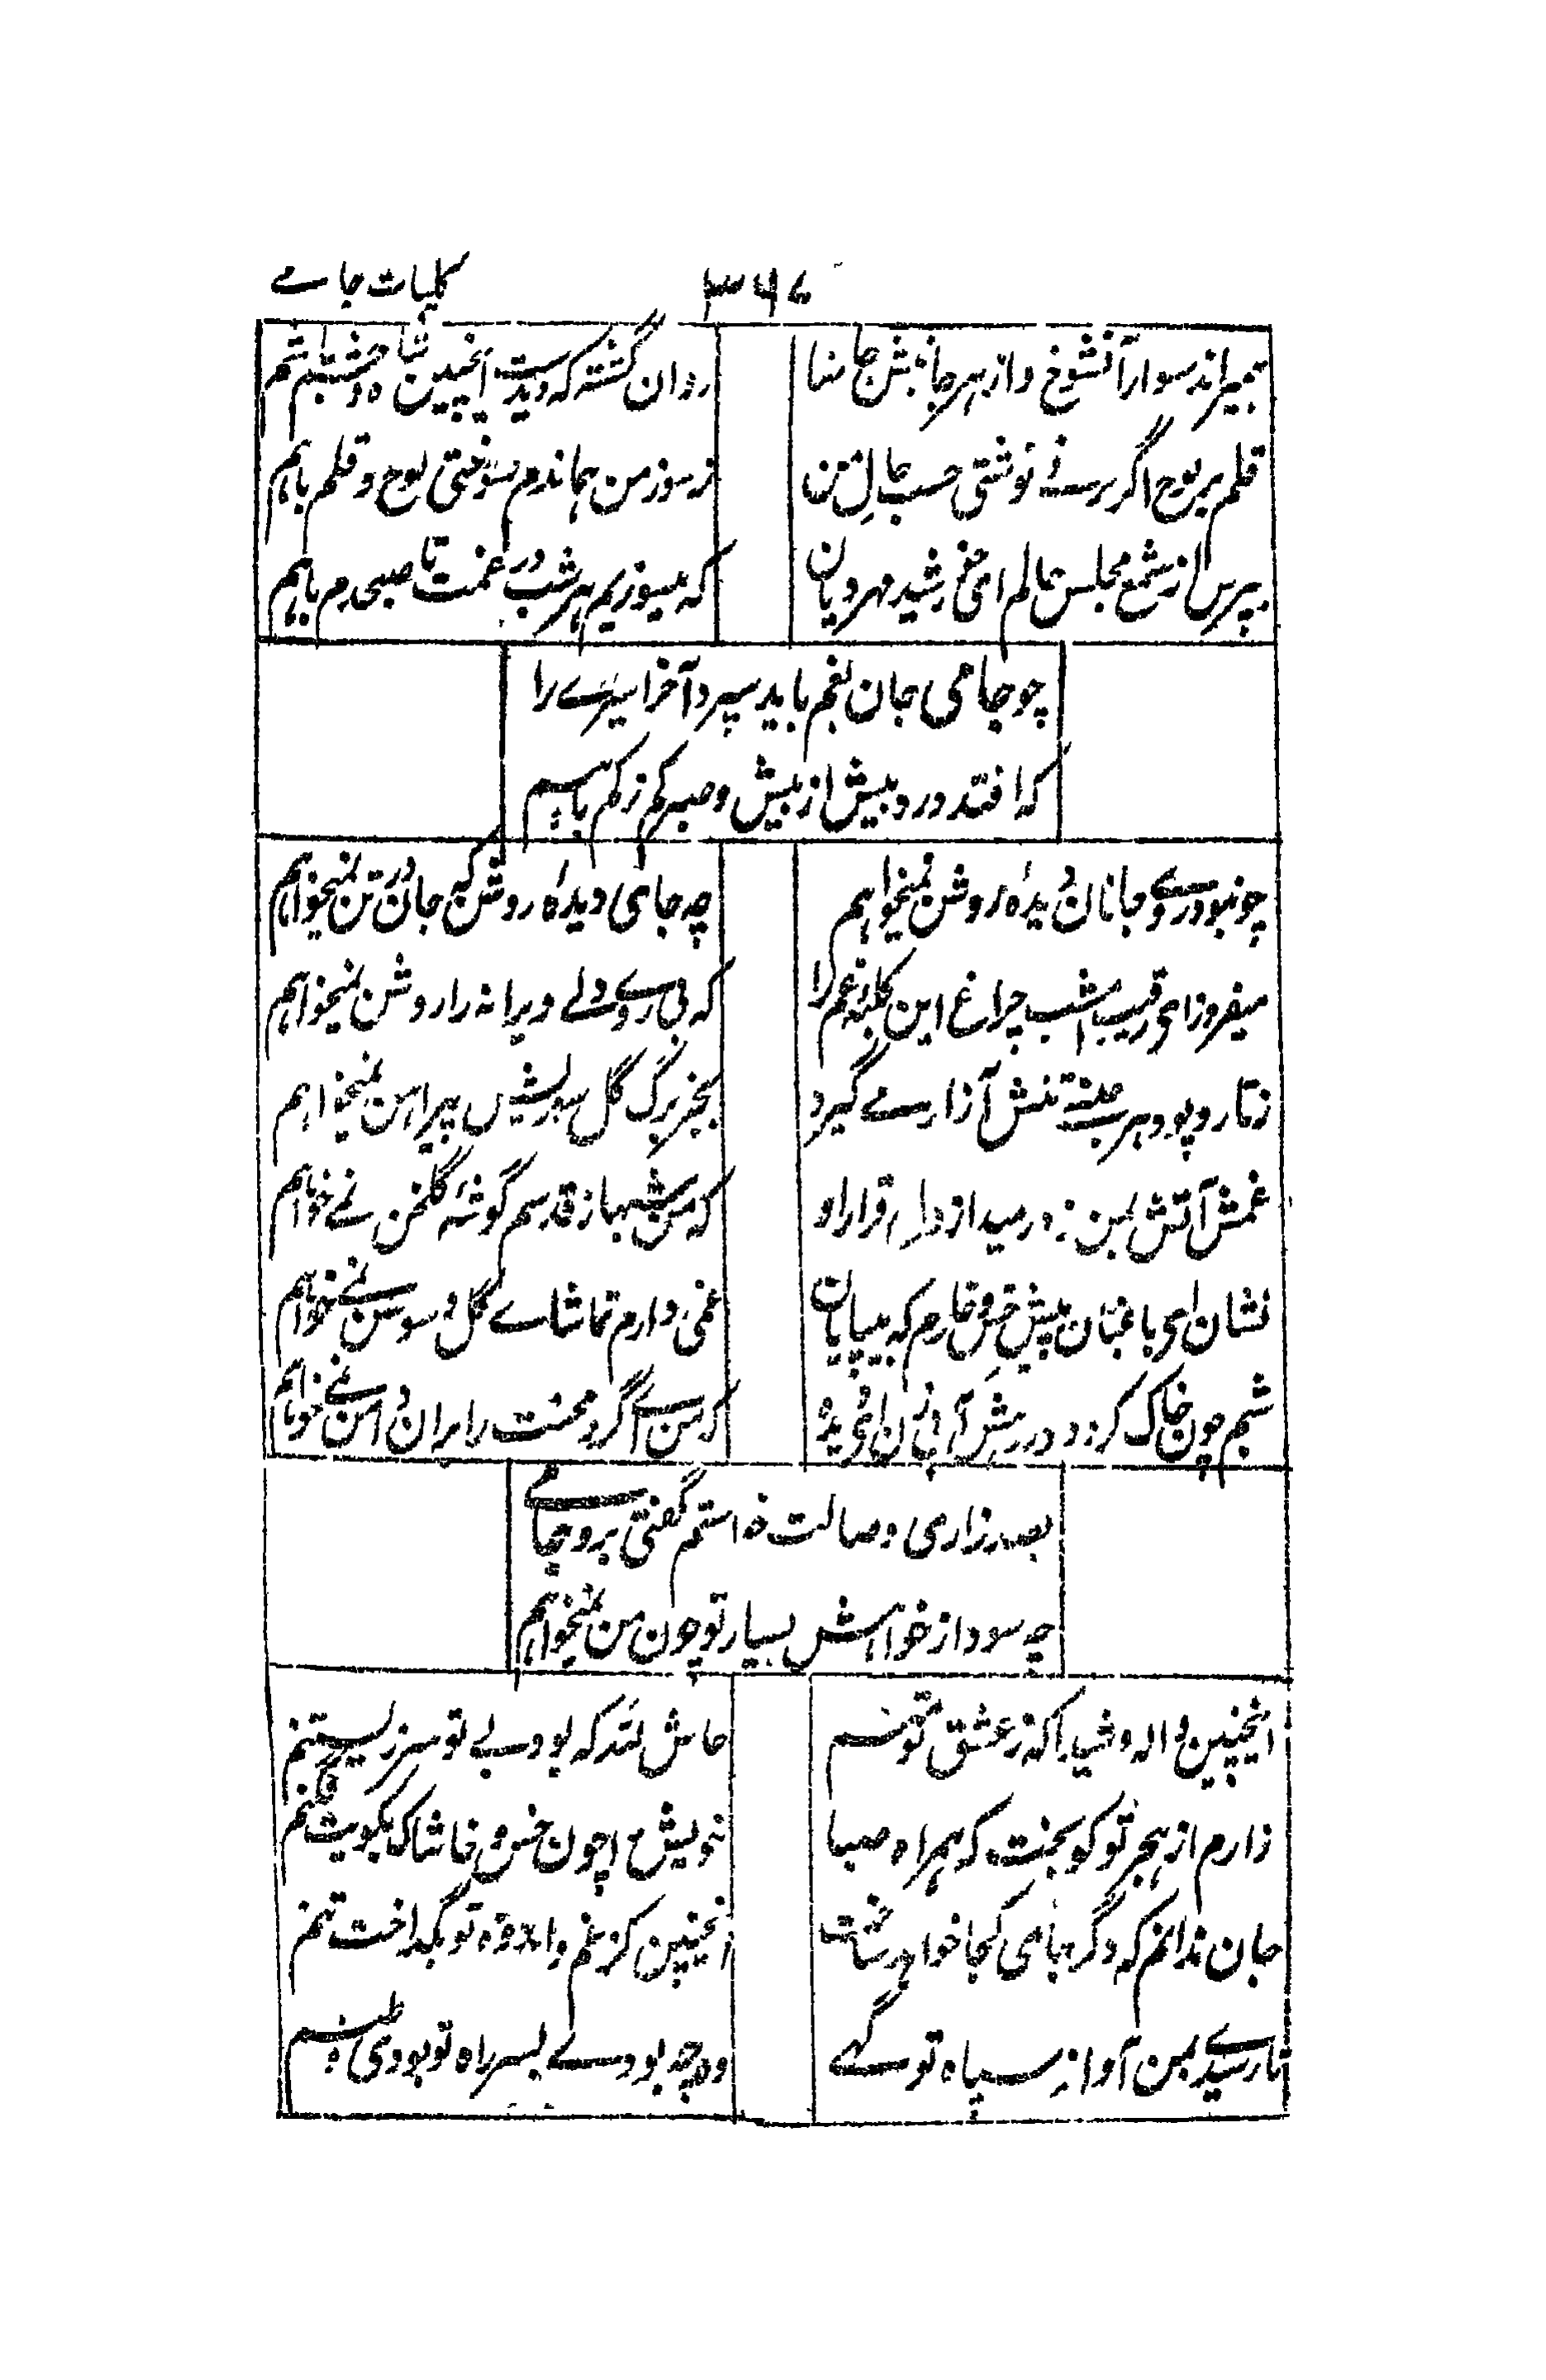 ۳۶۷ کلیات جامے
همیراند سوار آنشوخ و از هر جانبش جانها روان گشته که دیدست اینچنین شاه و حشم باهم
قلم بر لوح اگر حرفے نوشتی حسب حال من ز سوز من هماندم سوختی لوح و قلم باهم
بپرس از شمع مجلس حالم ای خورشید مهرویان که میسوزیم هر شب در غمت تا صبحدم باهم
چو جامی جان بغم باید سپرد آخر اسیرے را
که افتد درد بیش از بیش و صبر کم ز کم باهم
چو نبود روے جانان دیده روشن نمیخواهم چه جای دیده روشن که جان در تن نمیخواهم
میفروز ای رقیب امشب چراغ این کلبه غم را که بی روے وے ویرانه را روشن نمیخواهم
ز تار و پود هر جنسے تنش آزار مے گیرد بجز برگ گل سوریش پیراهن نمیخواهم
غمش آتش بمن زد رمید از دل قرار او که من شهباز قدسم گوشهٔ گلخن نمے خواهم
نشان ای باغبان پیش خس و خارم که بیپایان غمی دارم تماشاے گل و سوسن نمے خواهم
شبم چون خاک گردد در رهش آبی زن ای دیده که من گرد محنت را بران دامن نمے خواهم
بصد زاری وصالت خواستم گفتی برو جامے
چه سود از خواهش بسیار تو چون من نمیخواهم
اینچنین واله و شیدا که ز عشق تو منم حاش لله که بود بے تو سر زیستنم
زارم از هجر تو کو بخت که همراه صبا خویش را چون خس و خاشاک بکویت فکنم
جان ندانم که دگر جای کجا خواهد داشت اینچنین کز غم و اندوه تو بگداخت تنم
تا رسیدے بمن آواز سپاه تو گهے وه چه بودے بسر راه تو بودی وطنم